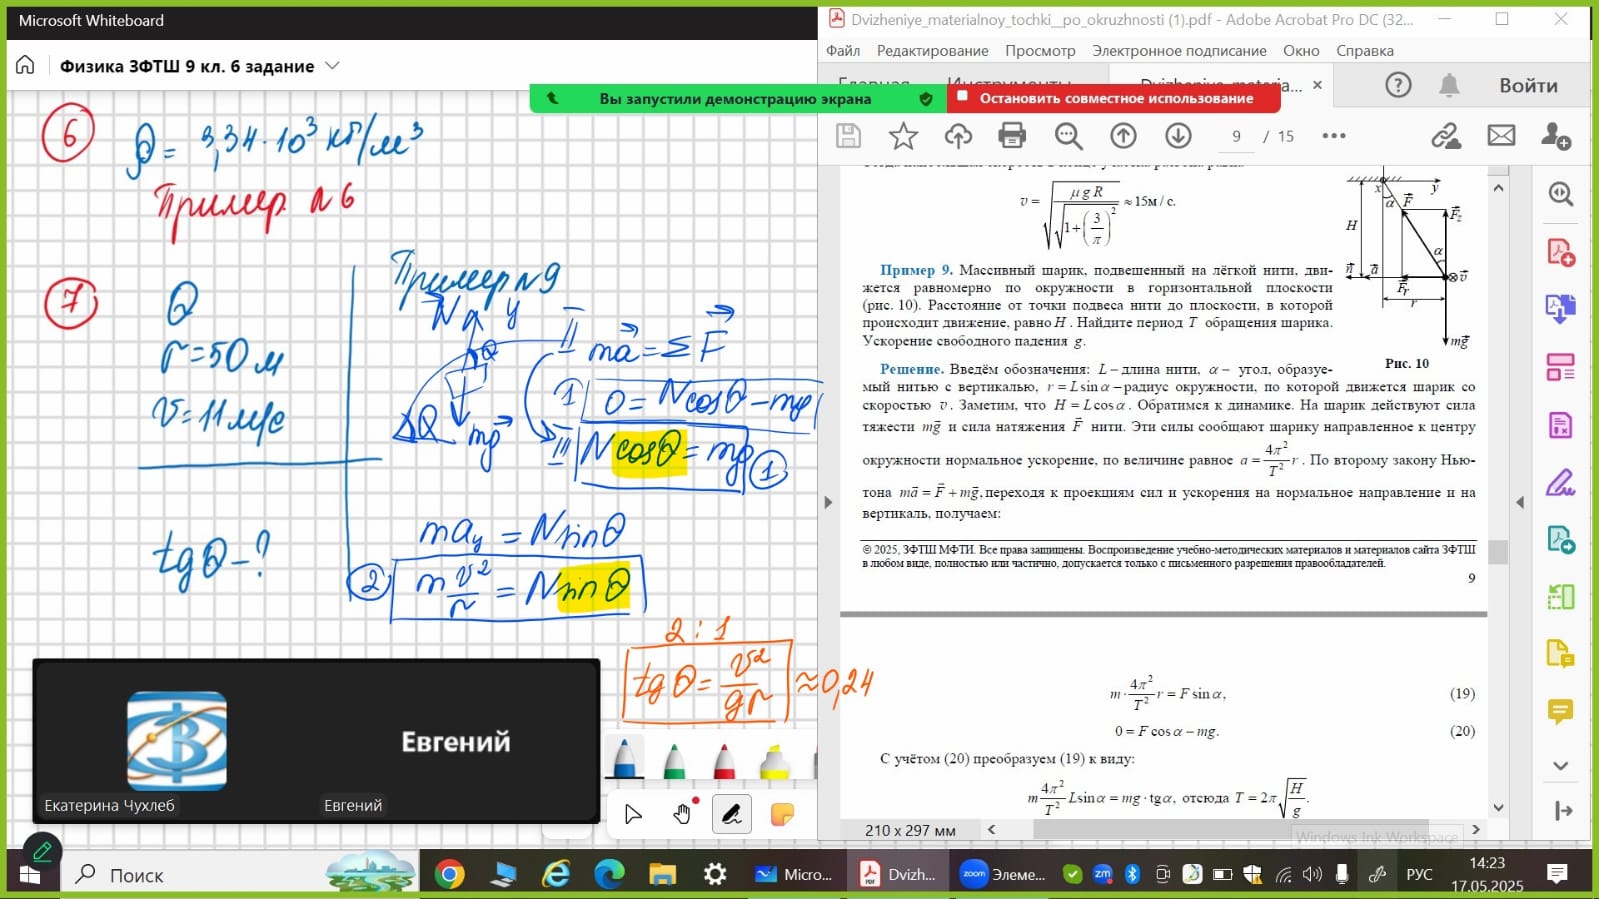 Microsoft Whiteboard
Физика ЗФТШ 9 кл. 6 задание
6
ρ = 3,34·10³ кг/м³
Пример №6
7
θ
r=50 м
v=11 м/с
tgθ-?
Пример №9
N y
θ
θ
mg
II ma = ΣF
1) 0 = Ncosθ - mg
II Ncosθ = mg 1
ma_y = Nsinθ
2 m v²/r = Nsinθ
2 : 1
tgθ = v²/gr ≈ 0,24
Евгений
Екатерина Чухлеб
Евгений
Вы запустили демонстрацию экрана
Остановить совместное использование
Dvizheniye_materialnoy_tochki__po_okruzhnosti (1).pdf - Adobe Acrobat Pro DC (32...
Файл Редактирование Просмотр Электронное подписание Окно Справка
Dvizheniye_materia... ×
Войти
9 / 15
v = √(μgR / √(1+(3/π)²)) ≈ 15м / с.
x y
α F F_z
H
α
n a F_r v
r
mg
Рис. 10
Пример 9. Массивный шарик, подвешенный на лёгкой нити, дви-
жется равномерно по окружности в горизонтальной плоскости
(рис. 10). Расстояние от точки подвеса нити до плоскости, в которой
происходит движение, равно H . Найдите период T обращения шарика.
Ускорение свободного падения g.
Решение. Введём обозначения: L – длина нити, α – угол, образуе-
мый нитью с вертикалью, r = Lsinα – радиус окружности, по которой движется шарик со
скоростью v. Заметим, что H = Lcosα. Обратимся к динамике. На шарик действуют сила
тяжести mg и сила натяжения F нити. Эти силы сообщают шарику направленное к центру
окружности нормальное ускорение, по величине равное a = 4π²/T² r . По второму закону Нью-
тона ma = F + mg, переходя к проекциям сил и ускорения на нормальное направление и на
вертикаль, получаем:
© 2025, ЗФТШ МФТИ. Все права защищены. Воспроизведение учебно-методических материалов и материалов сайта ЗФТШ
в любом виде, полностью или частично, допускается только с письменного разрешения правообладателей.
9
m · 4π²/T² r = F sin α, (19)
0 = F cos α – mg. (20)
С учётом (20) преобразуем (19) к виду:
m 4π²/T² L sin α = mg · tg α, отсюда T = 2π√(H/g).
210 x 297 мм
Windows Ink Workspace
Поиск
Micro...
Dvizh...
zoom Элеме...
zm
РУС
14:23
17.05.2025